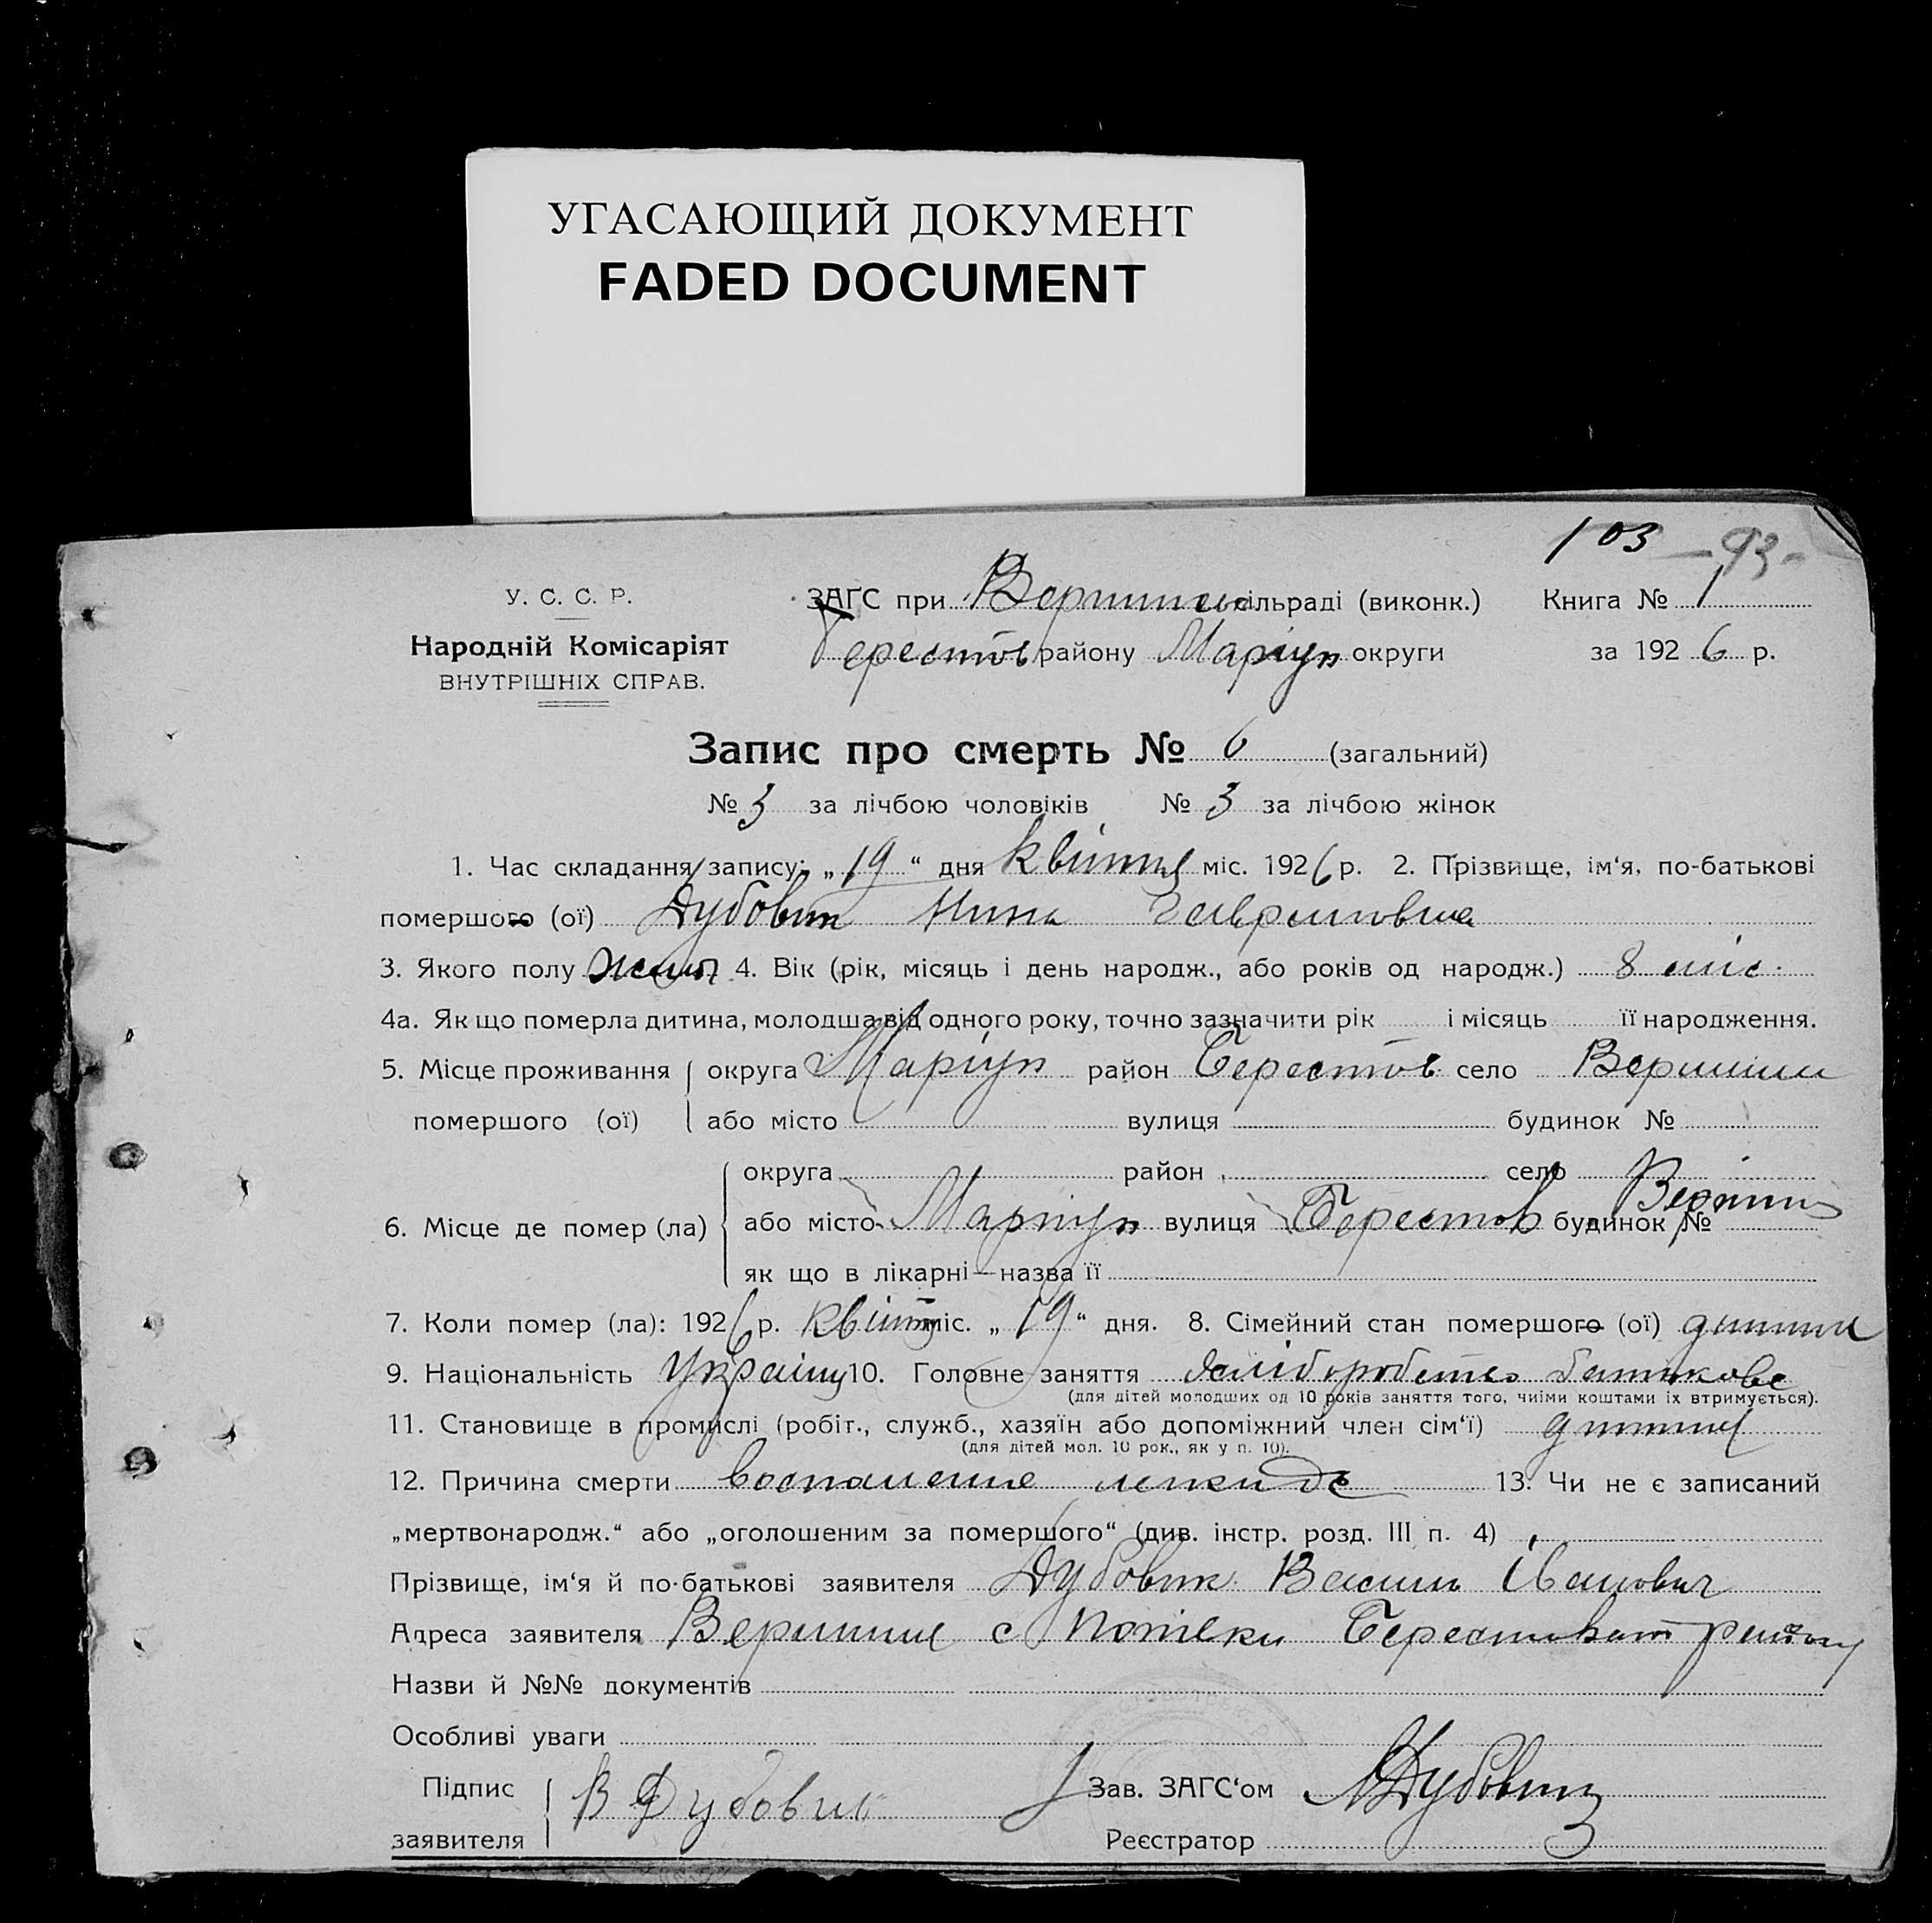 УГАСАЮЩИЙ ДОКУМЕНТ
FADED DOCUMENT
103 -93-
У. С. С. Р.
Народній Комісаріят
ВНУТРІШНІХ СПРАВ.
ЗАГС при Вершин сільраді (виконк.) Книга № 1
Берестов району Маріуп округи за 1926 р.
Запис про смерть № 6 (загальний)
№ 3 за лічбою чоловіків № 3 за лічбою жінок
1. Час складання запису: „19“ дня квітня міс. 1926 р. 2. Прізвище, ім‘я, по-батькові
помершого (ої) Дубовик Нина Гавриловна
3. Якого полу 4. Вік (рік, місяць і день народж., або років од народж.) 8 міс.
4а. Як що померла дитина, молодша від одного року, точно зазначити рік і місяць її народження.
5. Місце проживання округа Маріуп район Берестов село Вершини
помершого (ої) або місто вулиця будинок №
округа район село Вершин
6. Місце де помер (ла) або місто Маріуп вулиця Берестов будинок №
як що в лікарні—назва її
7. Коли помер (ла): 1926 р. квітня міс. „19“ дня. 8. Сімейний стан помершого (ої) дитина
9. Національність Україн 10. Головне заняття батькове
(для дітей молодших од 10 років заняття того, чиїми коштами їх втримується).
11. Становище в промислі (робіт., служб., хазяїн або допоміжний член сім‘ї) дитина
(для дітей мол. 10 рок., як у п. 10).
12. Причина смерти воспаление 13. Чи не є записаний
„мертвонародж.“ або „оголошеним за помершого“ (див. інстр. розд. III п. 4)
Прізвище, ім‘я й по-батькові заявителя Дубовик Василь Іванович
Адреса заявителя Вершина с Потіеки району
Назви й №№ документів
Особливі уваги
Підпис В Дубовик Зав. ЗАГС‘ом Дубовик
заявителя Реєстратор